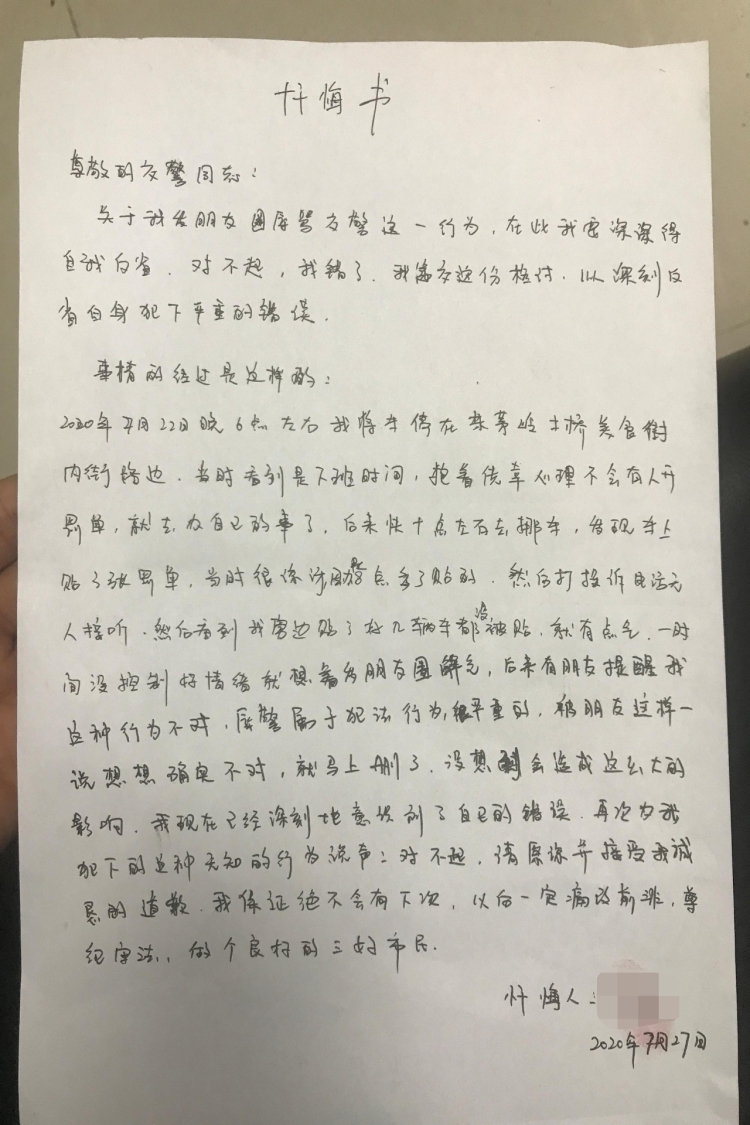 忏悔书
尊敬的交警同志：
关于我发朋友圈辱骂交警这一行为，在此我要深深得
自我自省．对不起，我错了．我写这份检讨．以深刻反
省自身犯下严重的错误．
事情的经过是这样的：
2020年7月22日晚6点左右我将车停在茅 土桥美食街
内街路边．当时看到是下班时间，抱着侥幸心理不会有人开
罚单，就去办自己的事了．后来快十点左右去挪车，发现车上
贴了张罚单，当时很 点多了贴的．然后打投诉电话无
人接听．然后看到我旁边贴了好几辆车都没被贴．就有点气．一时
间没控制好情绪就想着发朋友圈解气，后来有朋友提醒我
这种行为不对，辱警属于犯法行为，很严重的，被朋友这样一
说想想确实不对，就马上删了．没想到会造成这么大的
影响．我现在已经深刻地意识到了自己的错误．再次为我
犯下的这种无知的行为说声：对不起，请原谅并接受我诚
恳的道歉．我保证绝不会有下次，以后一定痛改前非，尊
纪守法，做个良好的三好市民．
忏悔人：
2020年7月27日